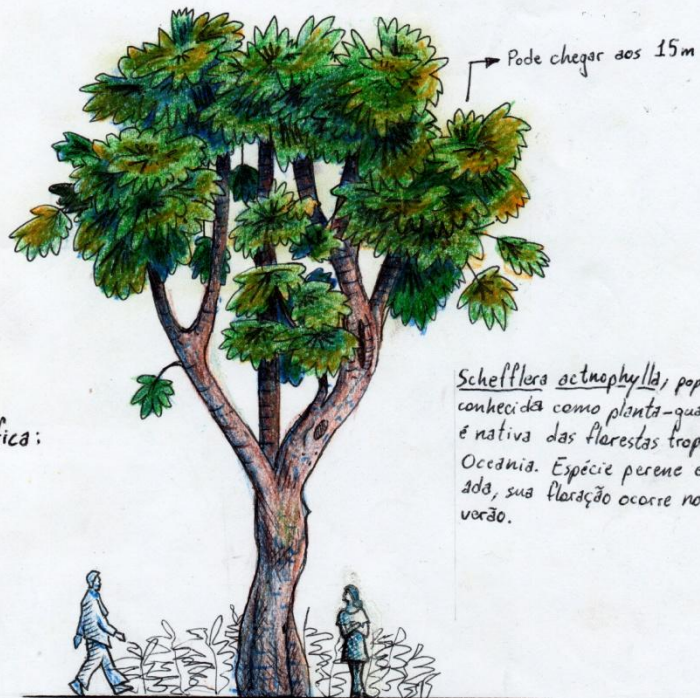 Pode chegar aos 15m
fica:
Schefflera actnophylla, pop
conhecida como planta-gua
é nativa das florestas trop
Oceania. Espécie perene e
ada, sua floração ocorre no
verão.